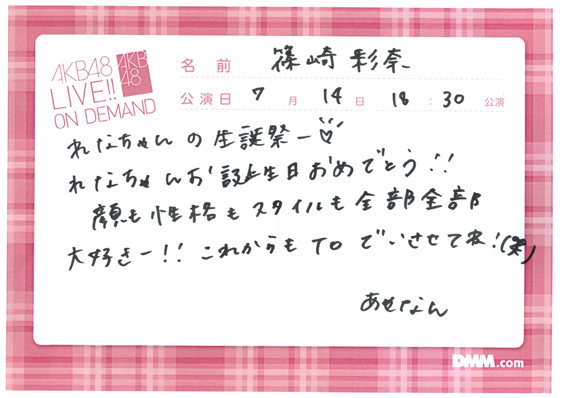 AKB48
LIVE!!
ON DEMAND
AKB
48
名前 篠崎彩奈
公演日 7月14日 18:30公演
れなちゃんの生誕祭ー♡
れなちゃんお誕生日おめでとう!!
顔も性格もスタイルも全部全部
大好きー!! これからもTOでいさせてね!(笑)
あやなん
DMM.com